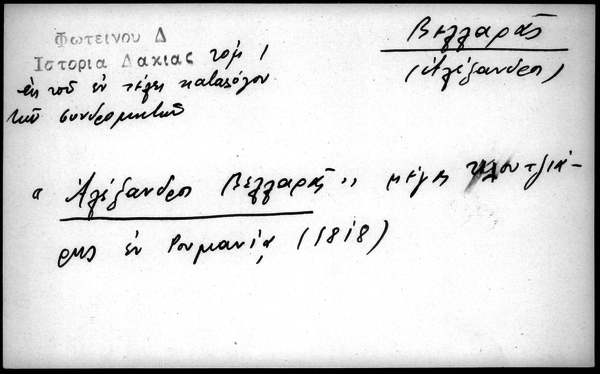 Φωτεινου Δ
Ιστορια Δακιας τομ 1
ἐκ τοῦ ἐν τέλει καταλόγου
τῶν συνδρομητῶν
Βελλαρᾶς
(Ἀλέξανδρος)
"Ἀλέξανδρος Βελλαρᾶς" μέγας κλουτζιά-
ρης ἐν Ρουμανίᾳ (1818)